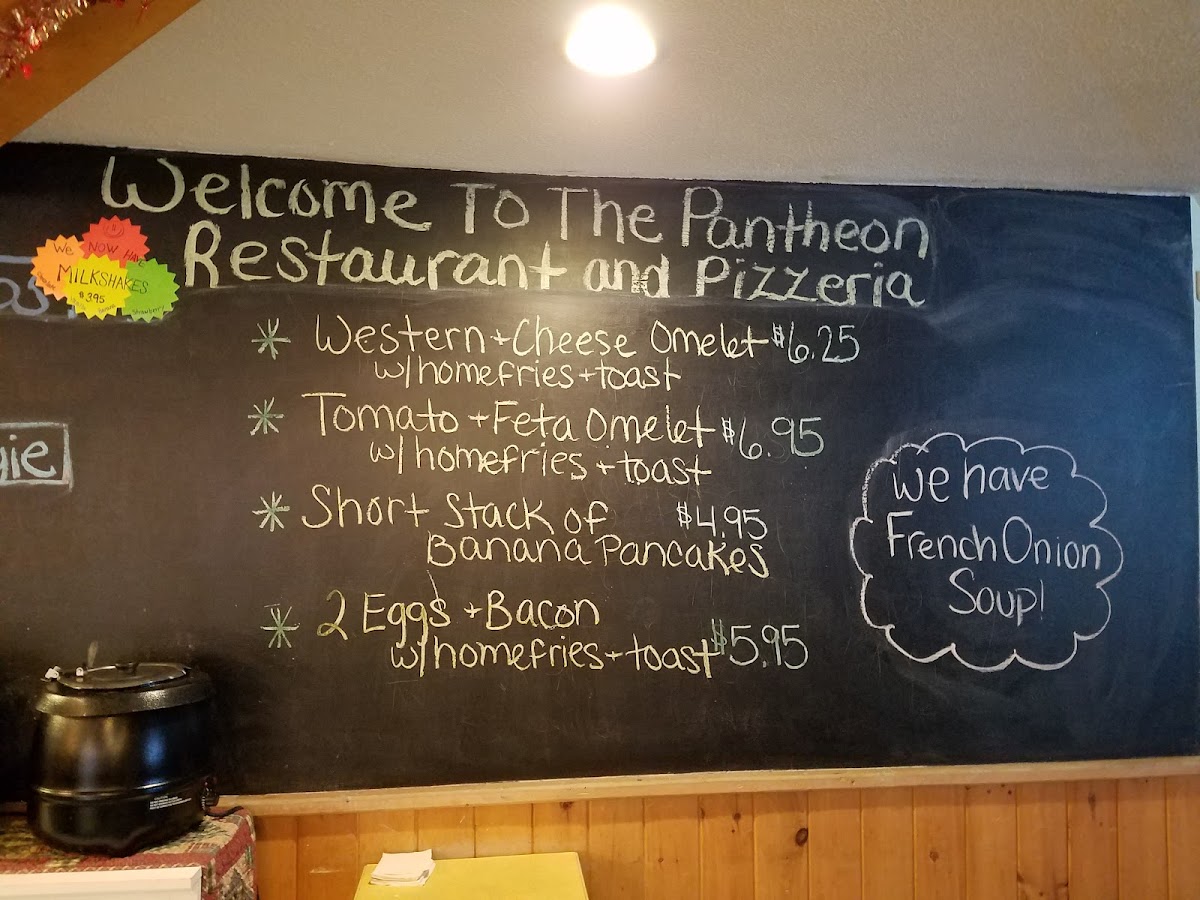 Welcome To The Pantheon
Restaurant and Pizzeria
We NOW HAVE
MILKSHAKES
$3.95
Strawberry
* Western + Cheese Omelet $6.25
w/homefries + toast
* Tomato + Feta Omelet $6.95
w/homefries + toast
* Short Stack of $4.95
Banana Pancakes
* 2 Eggs + Bacon
w/homefries + toast $5.95
we have
French Onion
Soup!
gie